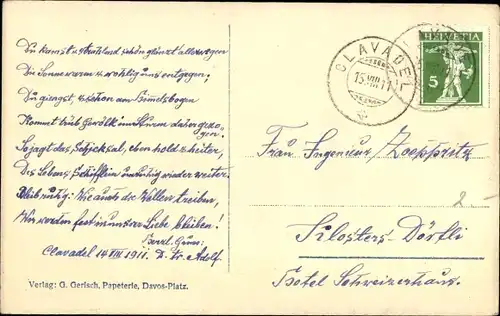 Du kamst u. strahlend schön glänzt allerwegen
Die Sonne warm u. wohlig uns entgegen;
Du giengst, u. schon am Himmelsbogen
Kommt trüb Gewölk im Sturm daher gezo-
gen!
So jagt das Schicksal, eben hold u. heiter,
Des Lebens Schifflein unruhig wieder weiter.
Bleib ruhig: Wie auch die Wellen treiben,
Wir werden fest in unsrer Liebe bleiben!
Herzl. Gruss:
Clavadel 14 VIII 1911. D. tr. Adolf.
Verlag: G. Gerisch, Papeterie, Davos-Platz.
CLAVADEL
15.VIII.11
HELVETIA
5
Frau Ingenieur Zoeppritz
2 -
Klosters-Dörfli
Hotel Schweizerhaus.